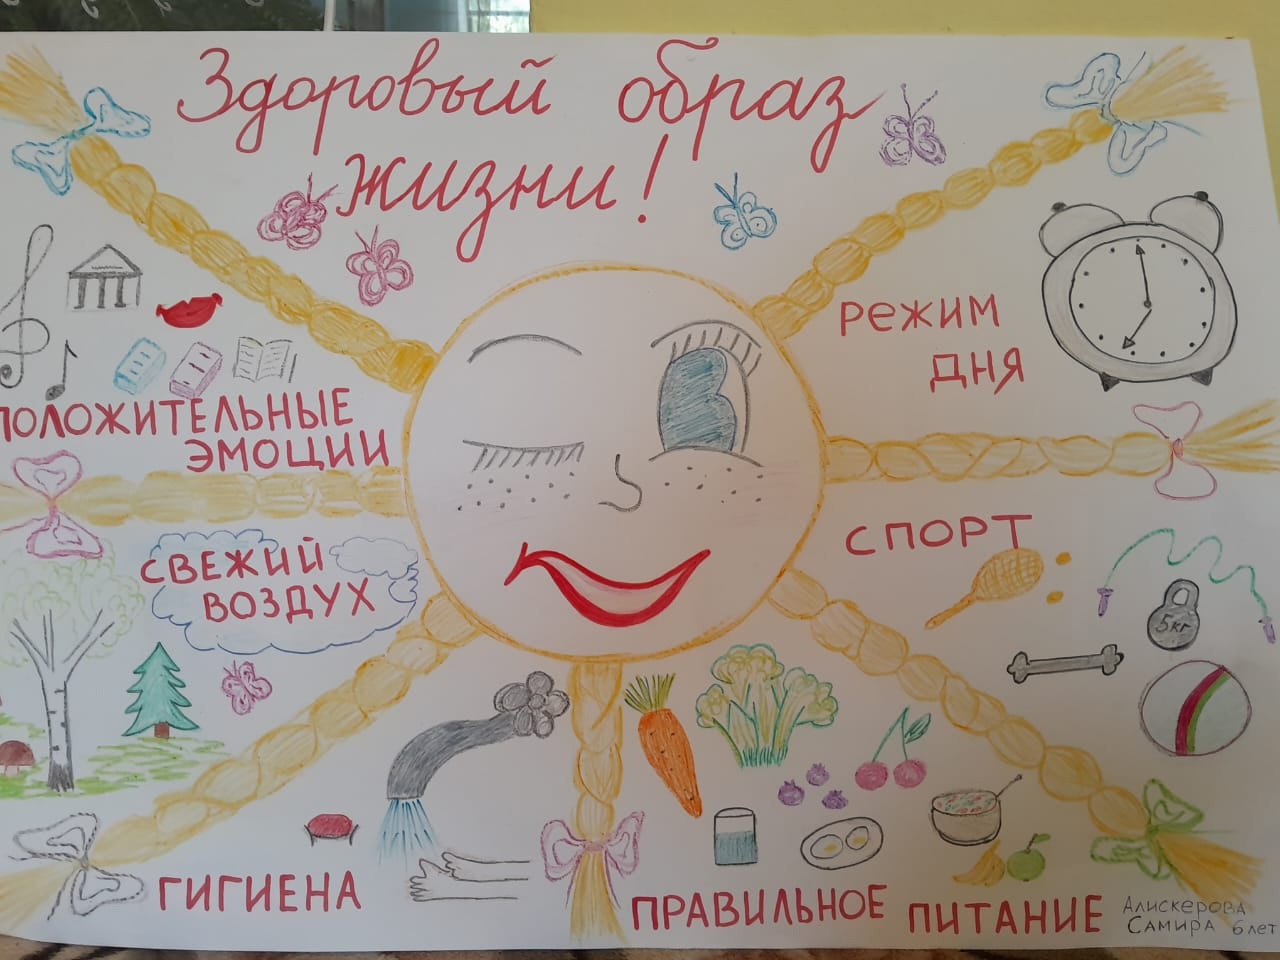 Здоровый образ
жизни!
РЕЖИМ
ДНЯ
ПОЛОЖИТЕЛЬНЫЕ
ЭМОЦИИ
СПОРТ
СВЕЖИЙ
ВОЗДУХ
5кг
ГИГИЕНА
ПРАВИЛЬНОЕ ПИТАНИЕ
Алискерова
Самира 6 лет